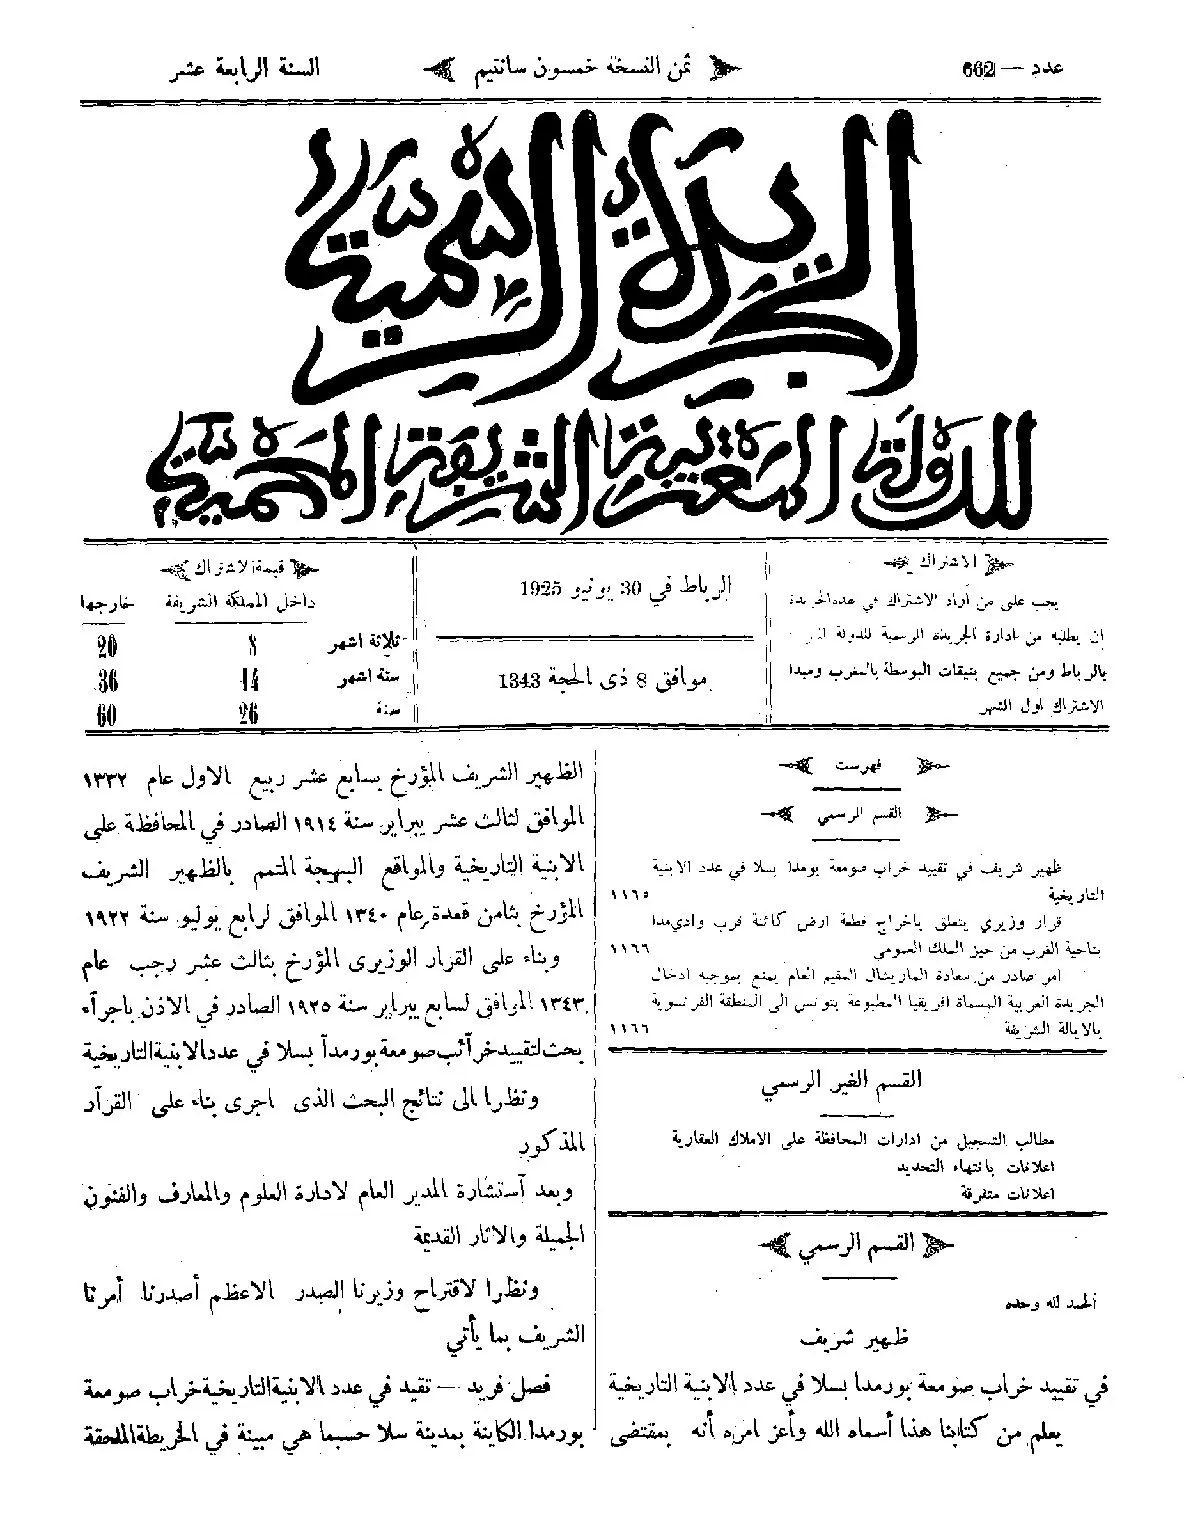 عدد — 662
ثمن النسخة خمسون سانتيم
السنة الرابعة عشر
الجريدة الرسمية
للدولة المغربية الشريفة المحمية
الاشتراك
يجب على من أراد الاشتراك في هذه الجريدة
ان يطلبه من ادارة الجريدة الرسمية للدولة
بالرباط ومن جميع بنيقات البوسطة بالمغرب ومبدا
الاشتراك اول الشهر
الرباط في 30 يونيو 1925
موافق 8 ذى الحجة 1343
قيمة الاشتراك
داخل المملكة الشريفة خارجها
ثلاثة اشهر 8 20
ستة اشهر 14 36
سنة 26 60
فهرست
القسم الرسمي
ظهير شريف في تقييد خراب صومعة بومدا بسلا في عدد الابنية
التاريخية ١١٦٥
قرار وزيري يتعلق باخراج قطعة ارض كائنة قرب وادي مدا
بناحية الغرب من حيز الملك العمومي ١١٦٦
امر صادر من سعادة الماريشال المقيم العام يمنع بموجبه ادخال
الجريدة العربية المسماة افريقيا المطبوعة بتونس الى المنطقة الفرنسوية
بالايالة الشريفة ١١٦٦
القسم الغير الرسمي
مطالب التسجيل من ادارات المحافظة على الاملاك العقارية
اعلانات بانتهاء التحديد
اعلانات متفرقة
القسم الرسمي
الحمد لله وحده
ظهير شريف
في تقييد خراب صومعة بورمدا بسلا في عدد الابنية التاريخية
يعلم من كتابنا هذا أسماه الله وأعز امره أنه بمقتضى
الظهير الشريف المؤرخ بسابع عشر ربيع الاول عام ١٣٣٢
الموافق لثالث عشر يبراير سنة ١٩١٤ الصادر في المحافظة على
الابنية التاريخية والمواقع البهجة المتمم بالظهير الشريف
المؤرخ بثامن قعدة عام ١٣٤٠ الموافق لرابع يوليو سنة ١٩٢٢
وبناء على القرار الوزيرى المؤرخ بثالث عشر رجب عام
١٣٤٣ الموافق لسابع يبراير سنة ١٩٢٥ الصادر في الاذن باجرآء
بحث لتقييد خرآئب صومعة بورمدآ بسلا في عدد الابنية التاريخية
ونظرا الى نتائج البحث الذى اجرى بناء على القرآر
المذكور
وبعد آستشارة المدير العام لادارة العلوم والمعارف والفنون
الجميلة والاثار القديمة
ونظرا لاقتراح وزيرنا الصدر الاعظم أصدرنا أمرنا
الشريف بما يأتي
فصل فريد — تقيد في عدد الابنية التاريخية خراب صومعة
بورمدا الكاينة بمدينة سلا حسبما هي مبينة في الخريطة الملحقة